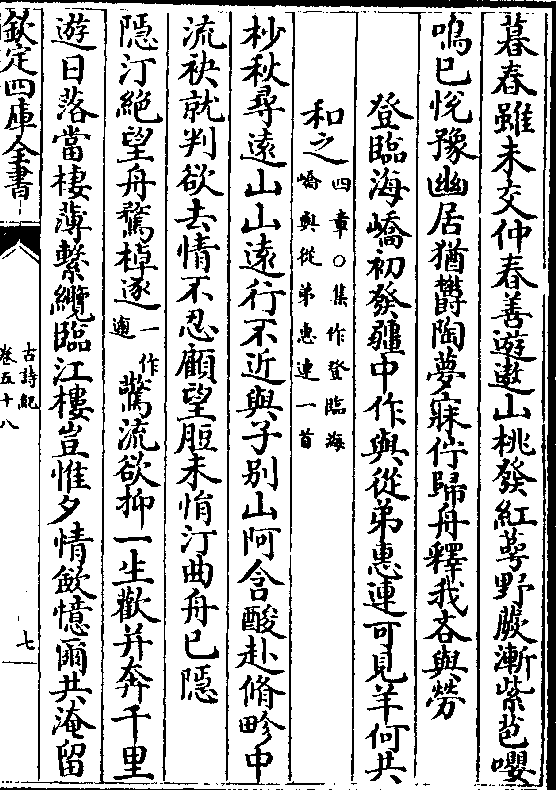 暮春雖未交仲春善遊遨山桃發紅萼野蕨漸紫苞嚶
鳴已恱豫幽居猶鬱陶夢寐佇歸舟釋我吝與勞
登臨海嶠初發疆中作與從弟惠連可見羊何共
和之四章○集作登臨海嶠與從弟惠連一首
杪秋尋遠山山遠行不近與子别山阿含酸赴脩畛中
流袂就判欲去情不忍顧望脰未悁汀曲舟已隱
隱汀絶望舟驚棹逐一作遄驚流欲抑一生歡并奔千里
遊日落當棲薄繫纜臨江樓豈惟夕情歛憶爾共淹留
欽定四庫全書
古詩紀
卷五十八
七